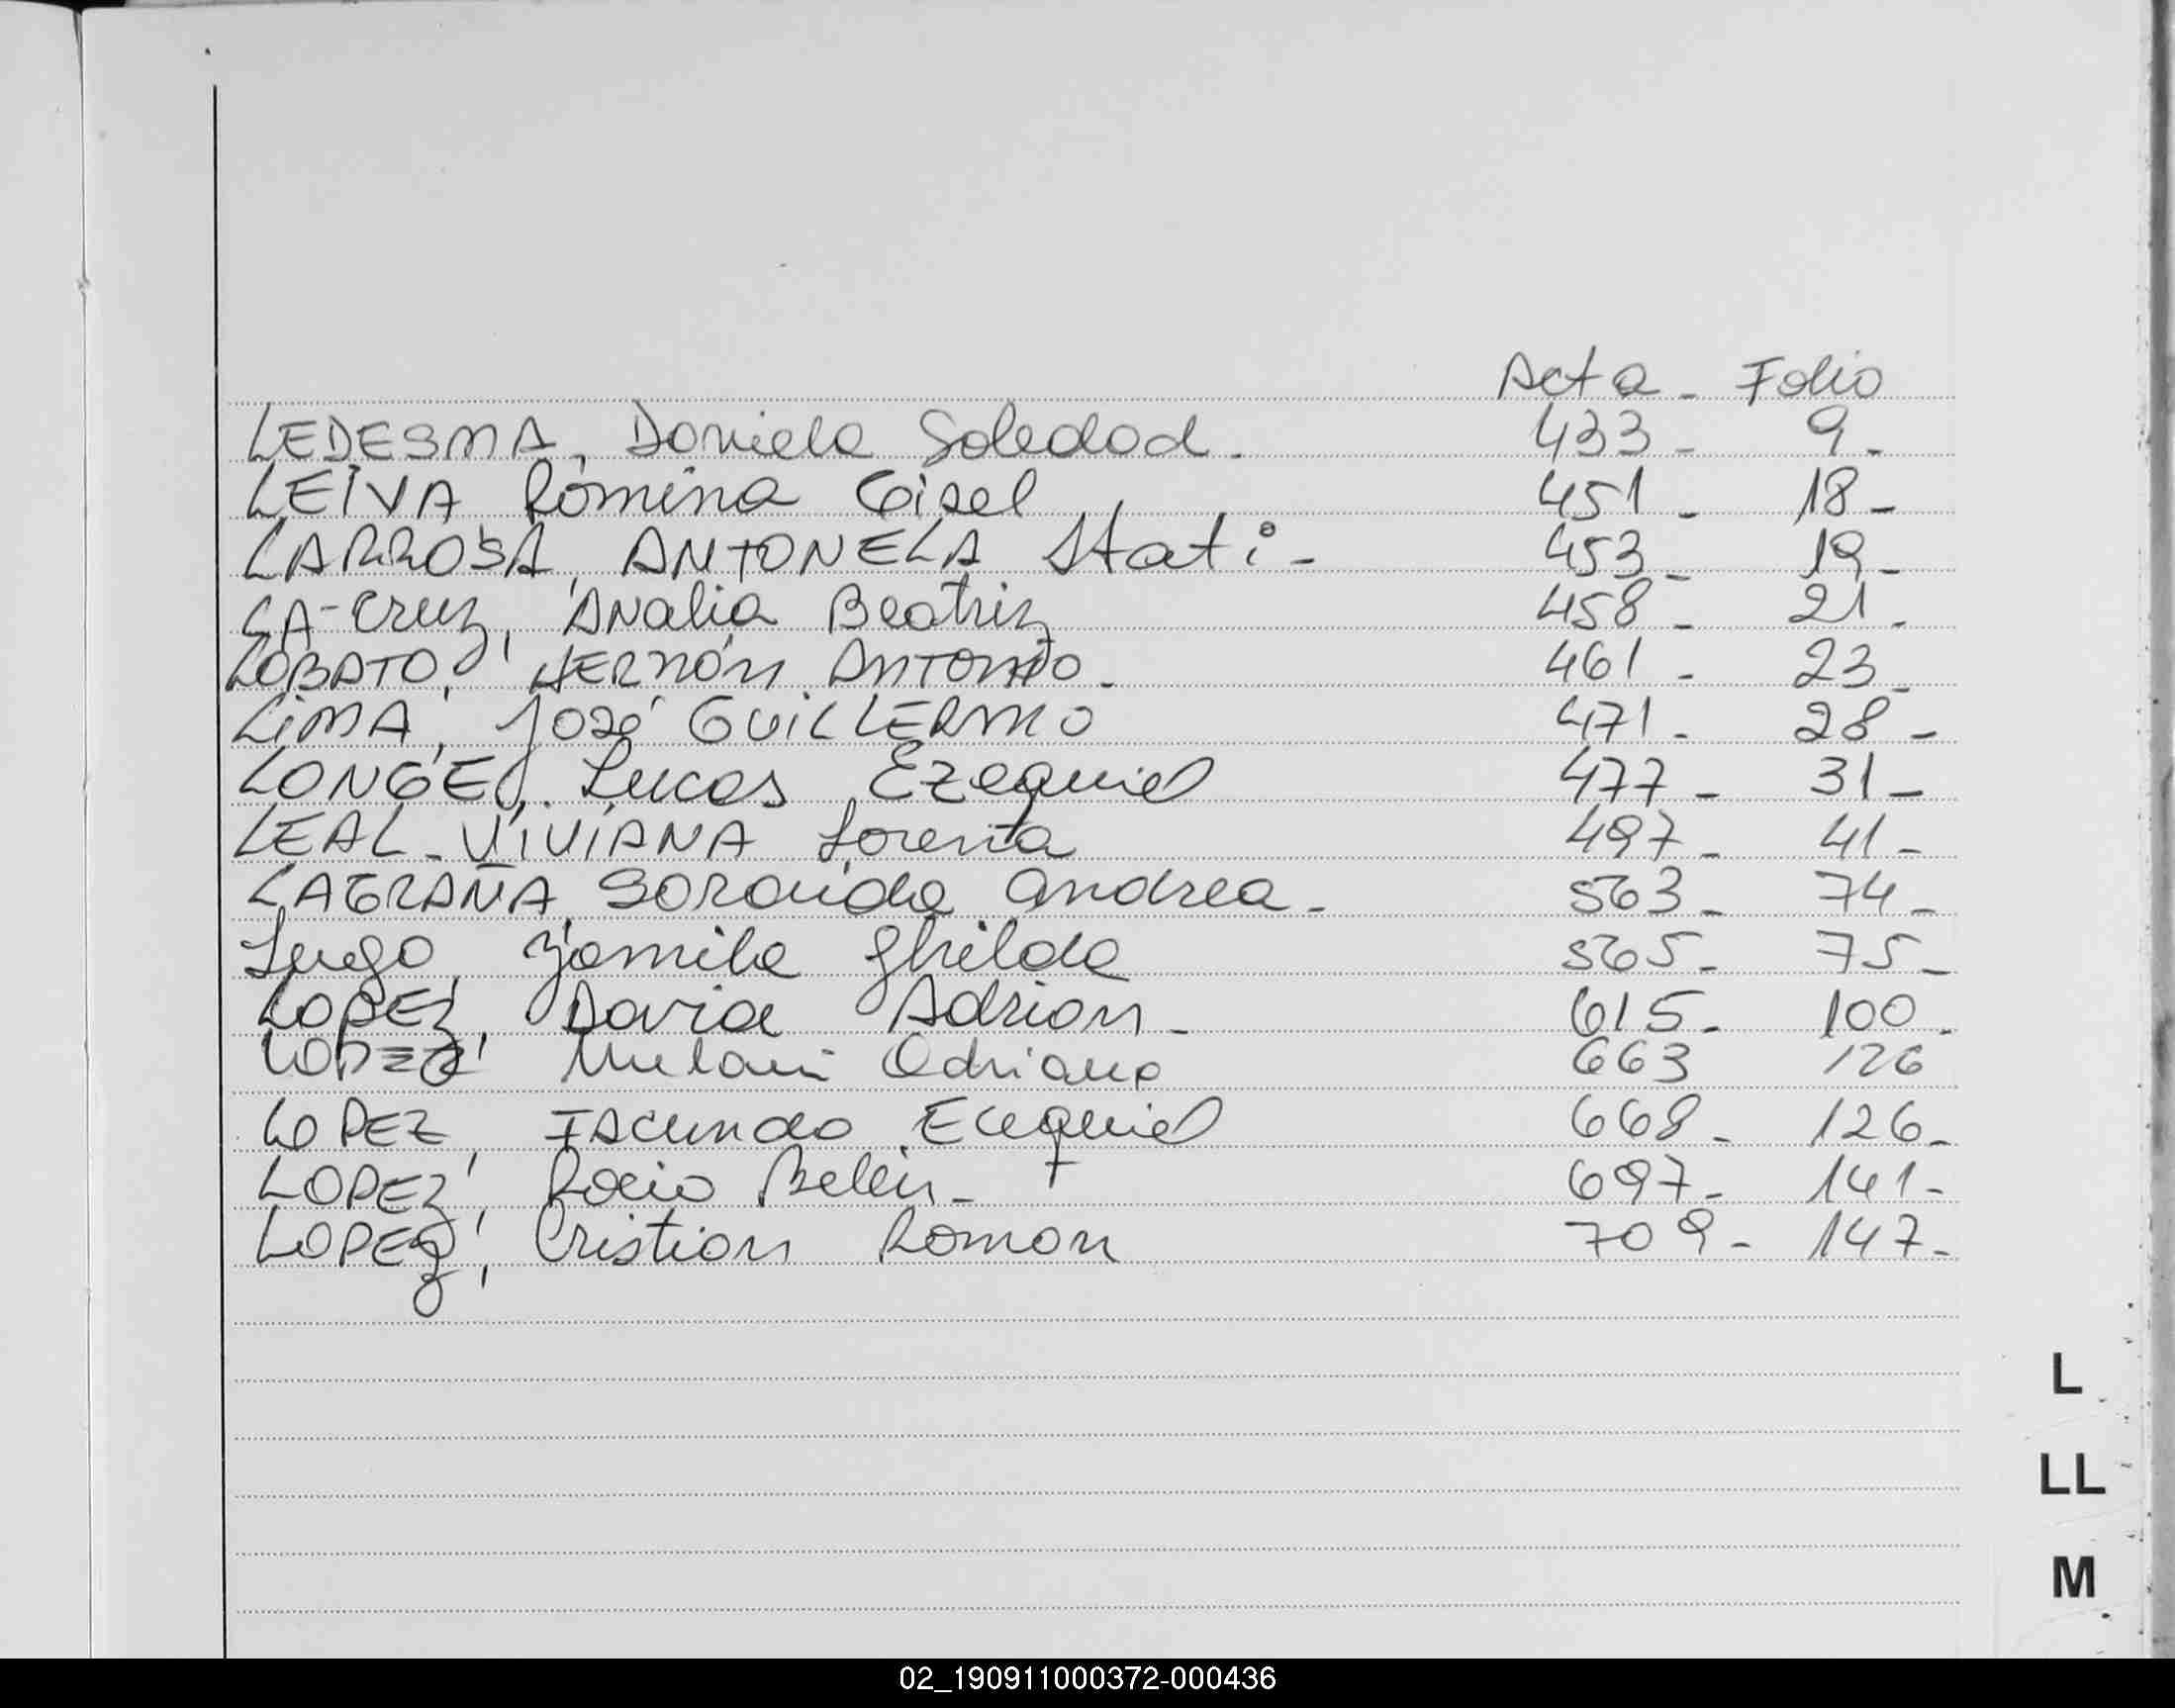 Acta - Folio
LEDESMA, Daniela Soledad. 433 - 9 -
LEIVA Romina Gisel 451 - 18 -
LARROSA, ANTONELA Stati - 453 - 19 -
LA-Cruz, Analia Beatriz 458 - 21 -
LOBATO, HERNÁN ANTONIO - 461 - 23 -
LIMA, José GUILLERMO 471 - 28 -
LONGE, Lucas Ezequiel 477 - 31 -
LEAL - VIVIANA Lorena 497 - 41 -
LAGRAÑA, Soraida Andrea - 563 - 74 -
Lugo, Yamila Ghilda 565 - 75 -
LOPEZ, David Adrian - 615 - 100 -
LOPEZ Melani Adriana 663 126
LOPEZ, Facundo Ecequiel 668 - 126 -
LOPEZ, Rocio Belén - 697 - 141 -
LOPEZ, Cristian Roman 709 - 147 -
L
LL
M
02_190911000372-000436